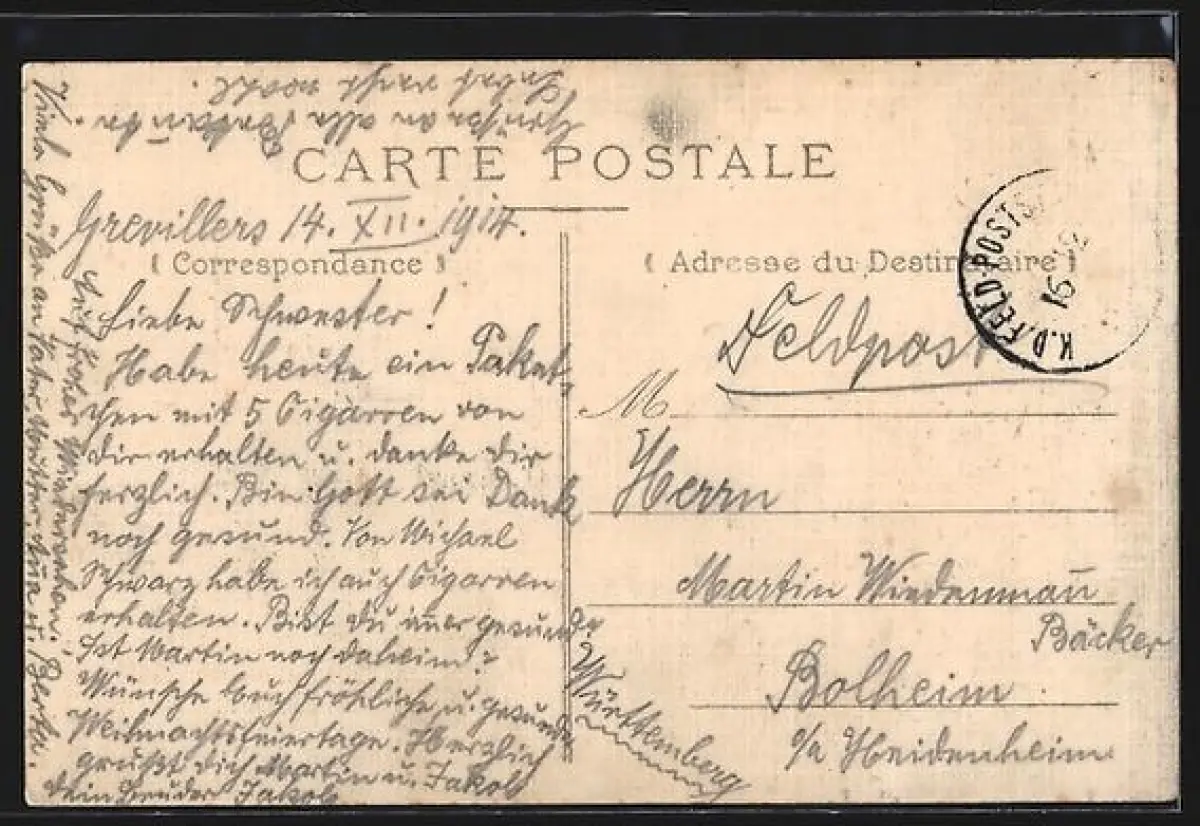 CARTE POSTALE
Grevillers 14. XII. 1914.
( Correspondance )
Liebe Schwester!
Habe heute ein Paket-
chen mit 5 Cigarren von
dir erhalten u. danke dir
herzlich. Bin Gott sei Dank
noch gesund. Von Michael
Schwarz habe ich auch Cigarren
erhalten. Bist du im̅er gesund?
Ist Martin noch daheim?
Wünsche Euch fröhliche u. gesunde
Weihnachtsfeiertage. Herzlich
grüßt dich Martin u. Jakob
dein Bruder Jakob
Auf frohes Wiedersehen!
Viele Grüße an Vater, Mutter, u. Berta.
Grüße an alle Bekannte.
Lebet recht wohl.
( Adresse du Destinataire )
K.D. FELD-POSTS
16
Feldpost
M
Herrn
Martin Wiedenman̅
Bäcker
Bolheim
o/a Heidenheim
Württemberg